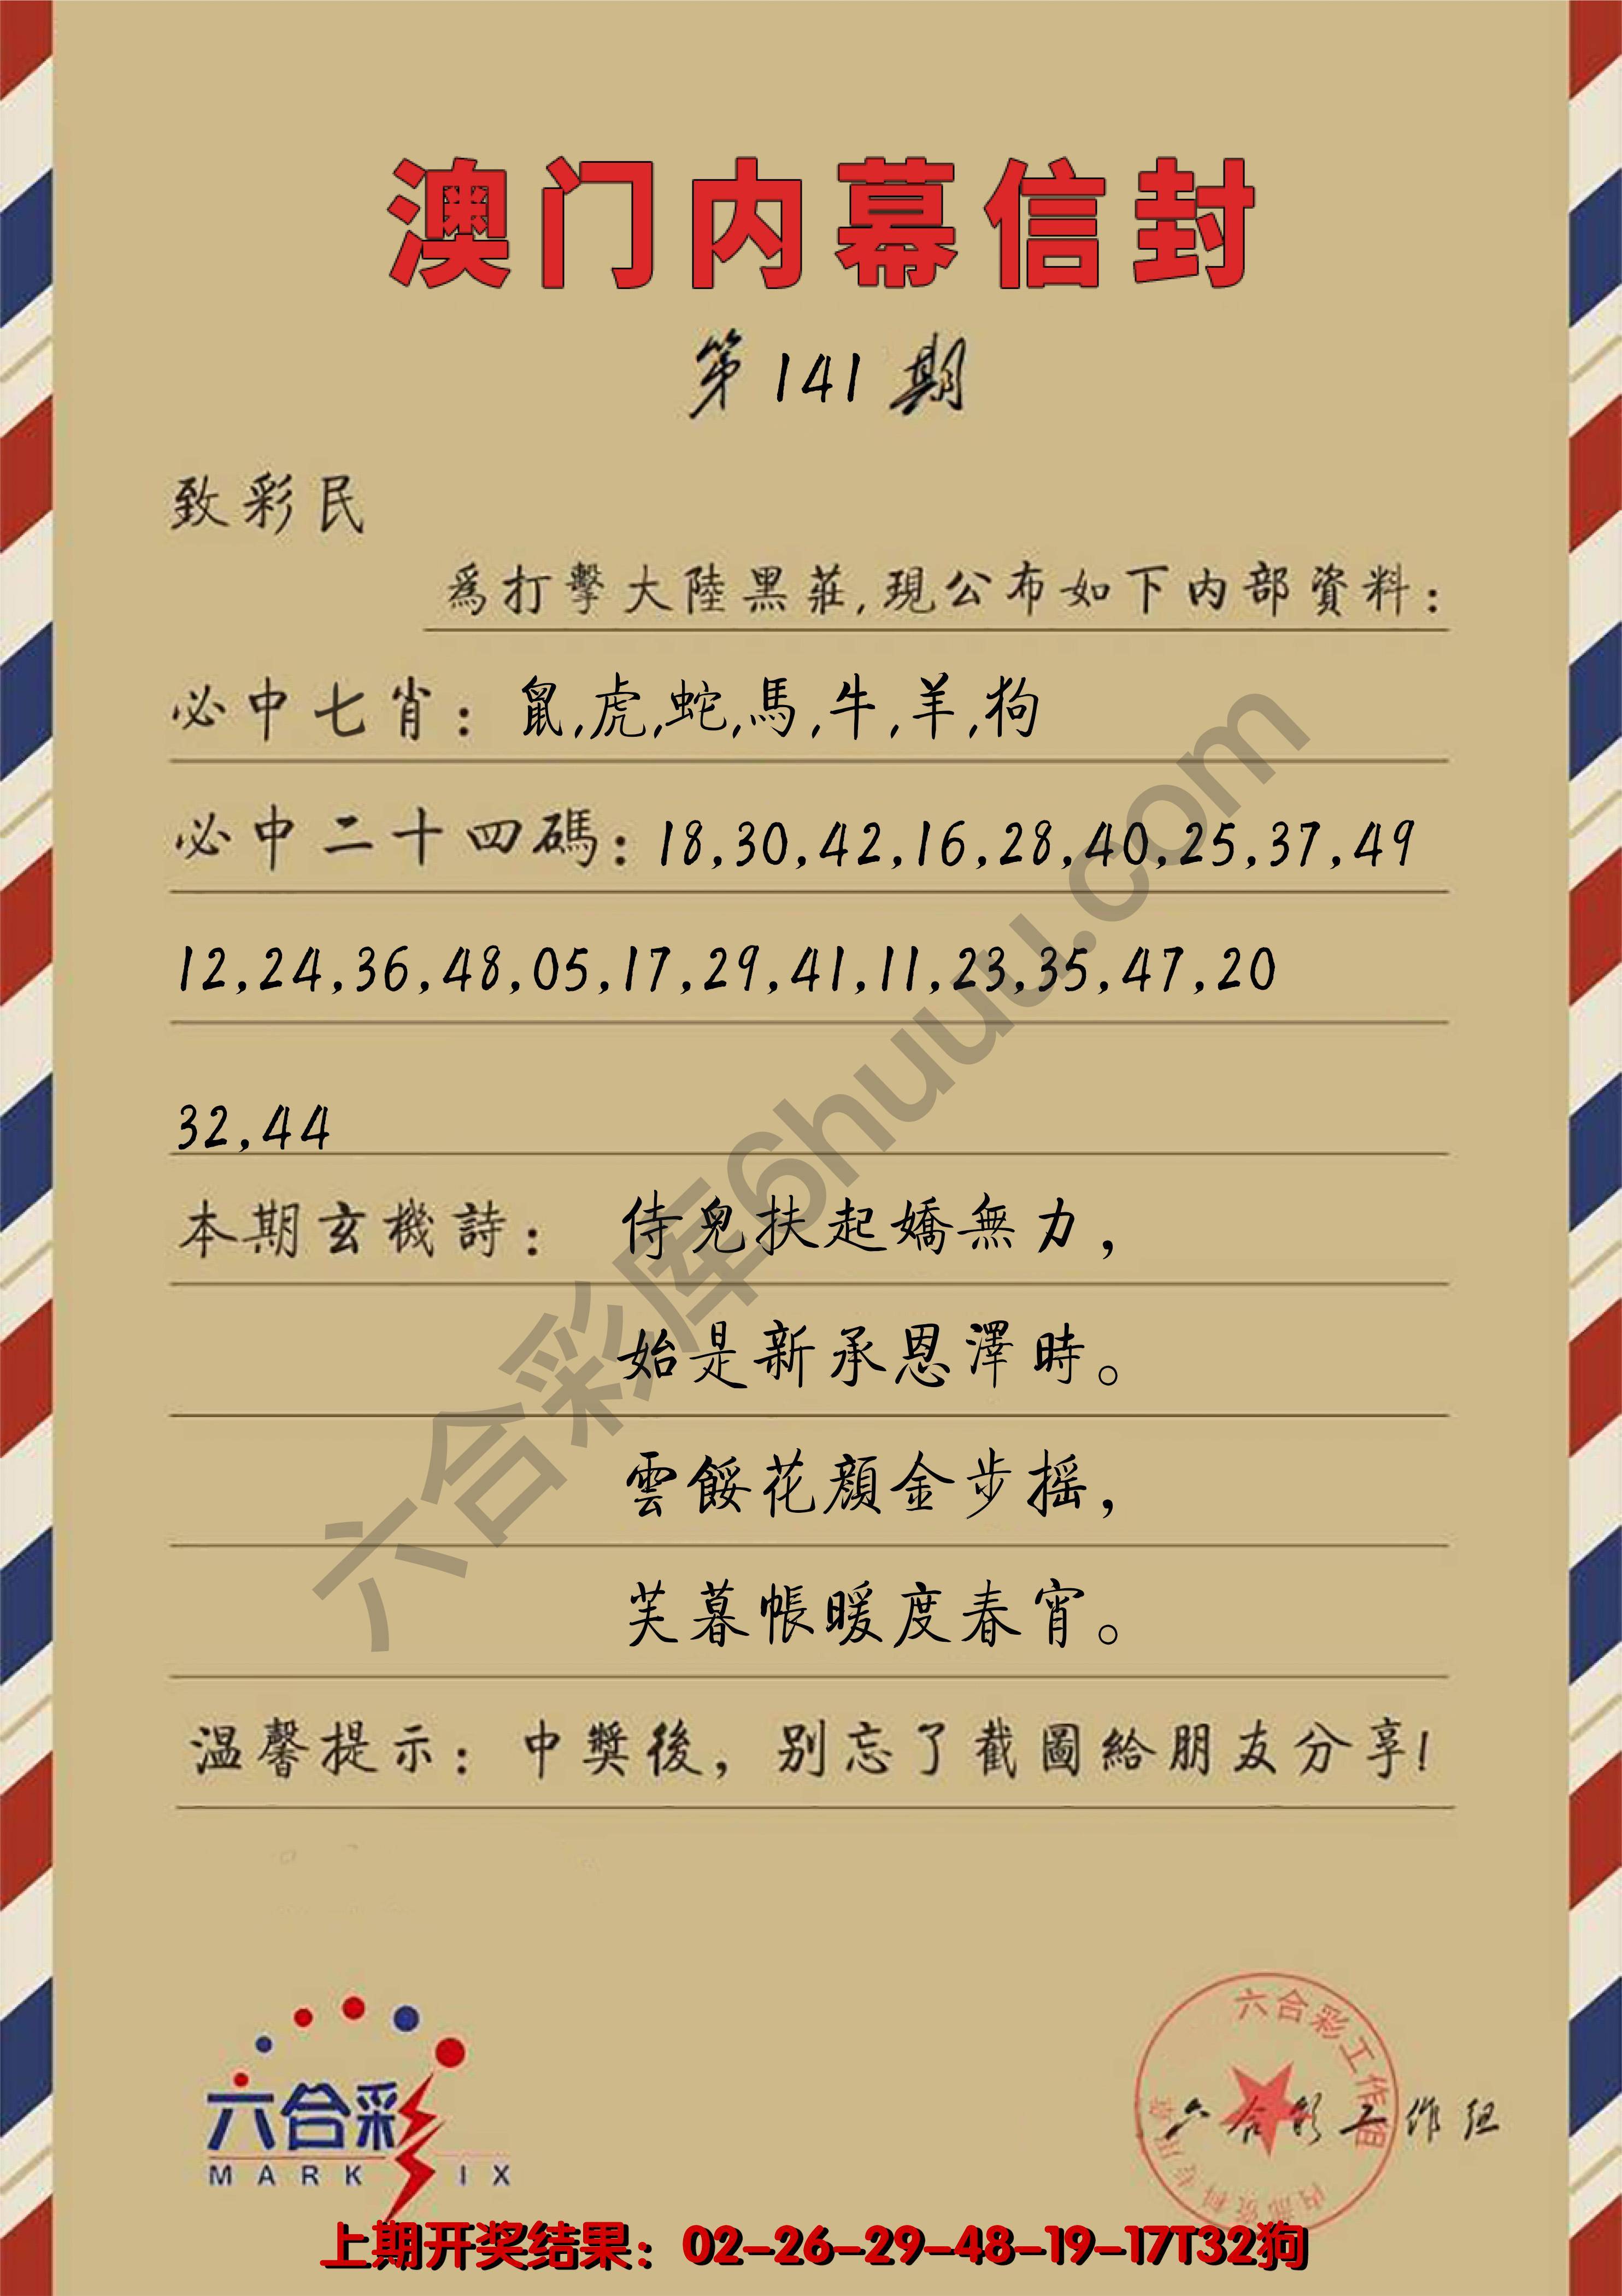 澳门内幕信封
第141期
致彩民
爲打擊大陸黑莊,現公布如下内部資料:
必中七肖: 鼠,虎,蛇,馬,牛,羊,狗
必中二十四碼: 18,30,42,16,28,40,25,37,49
12,24,36,48,05,17,29,41,11,23,35,47,20
32,44
本期玄機詩: 侍兒扶起嬌無力,
始是新承恩澤時。
雲餒花顔金步摇,
芙暮帳暖度春宵。
温馨提示: 中獎後, 别忘了截圖給朋友分享!
六合彩库6huuu.com
六合彩
MARK SIX
六合彩工作组
六合彩工作组
上期开奖结果: 02-26-29-48-19-17T32狗